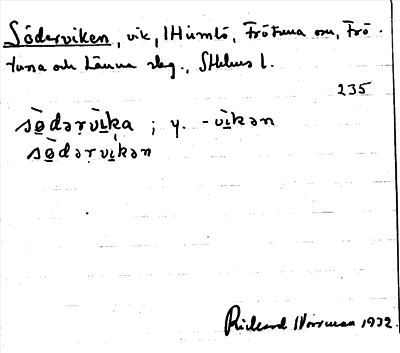 Söderviken, vik, Humlö, Frötuna sn, Frö-
tuna och Länna slag., SthLms l.
235
sö̀dərvìka ; y. -vìkən
sö̀dərvìkən
Rickard Norrman 1932.